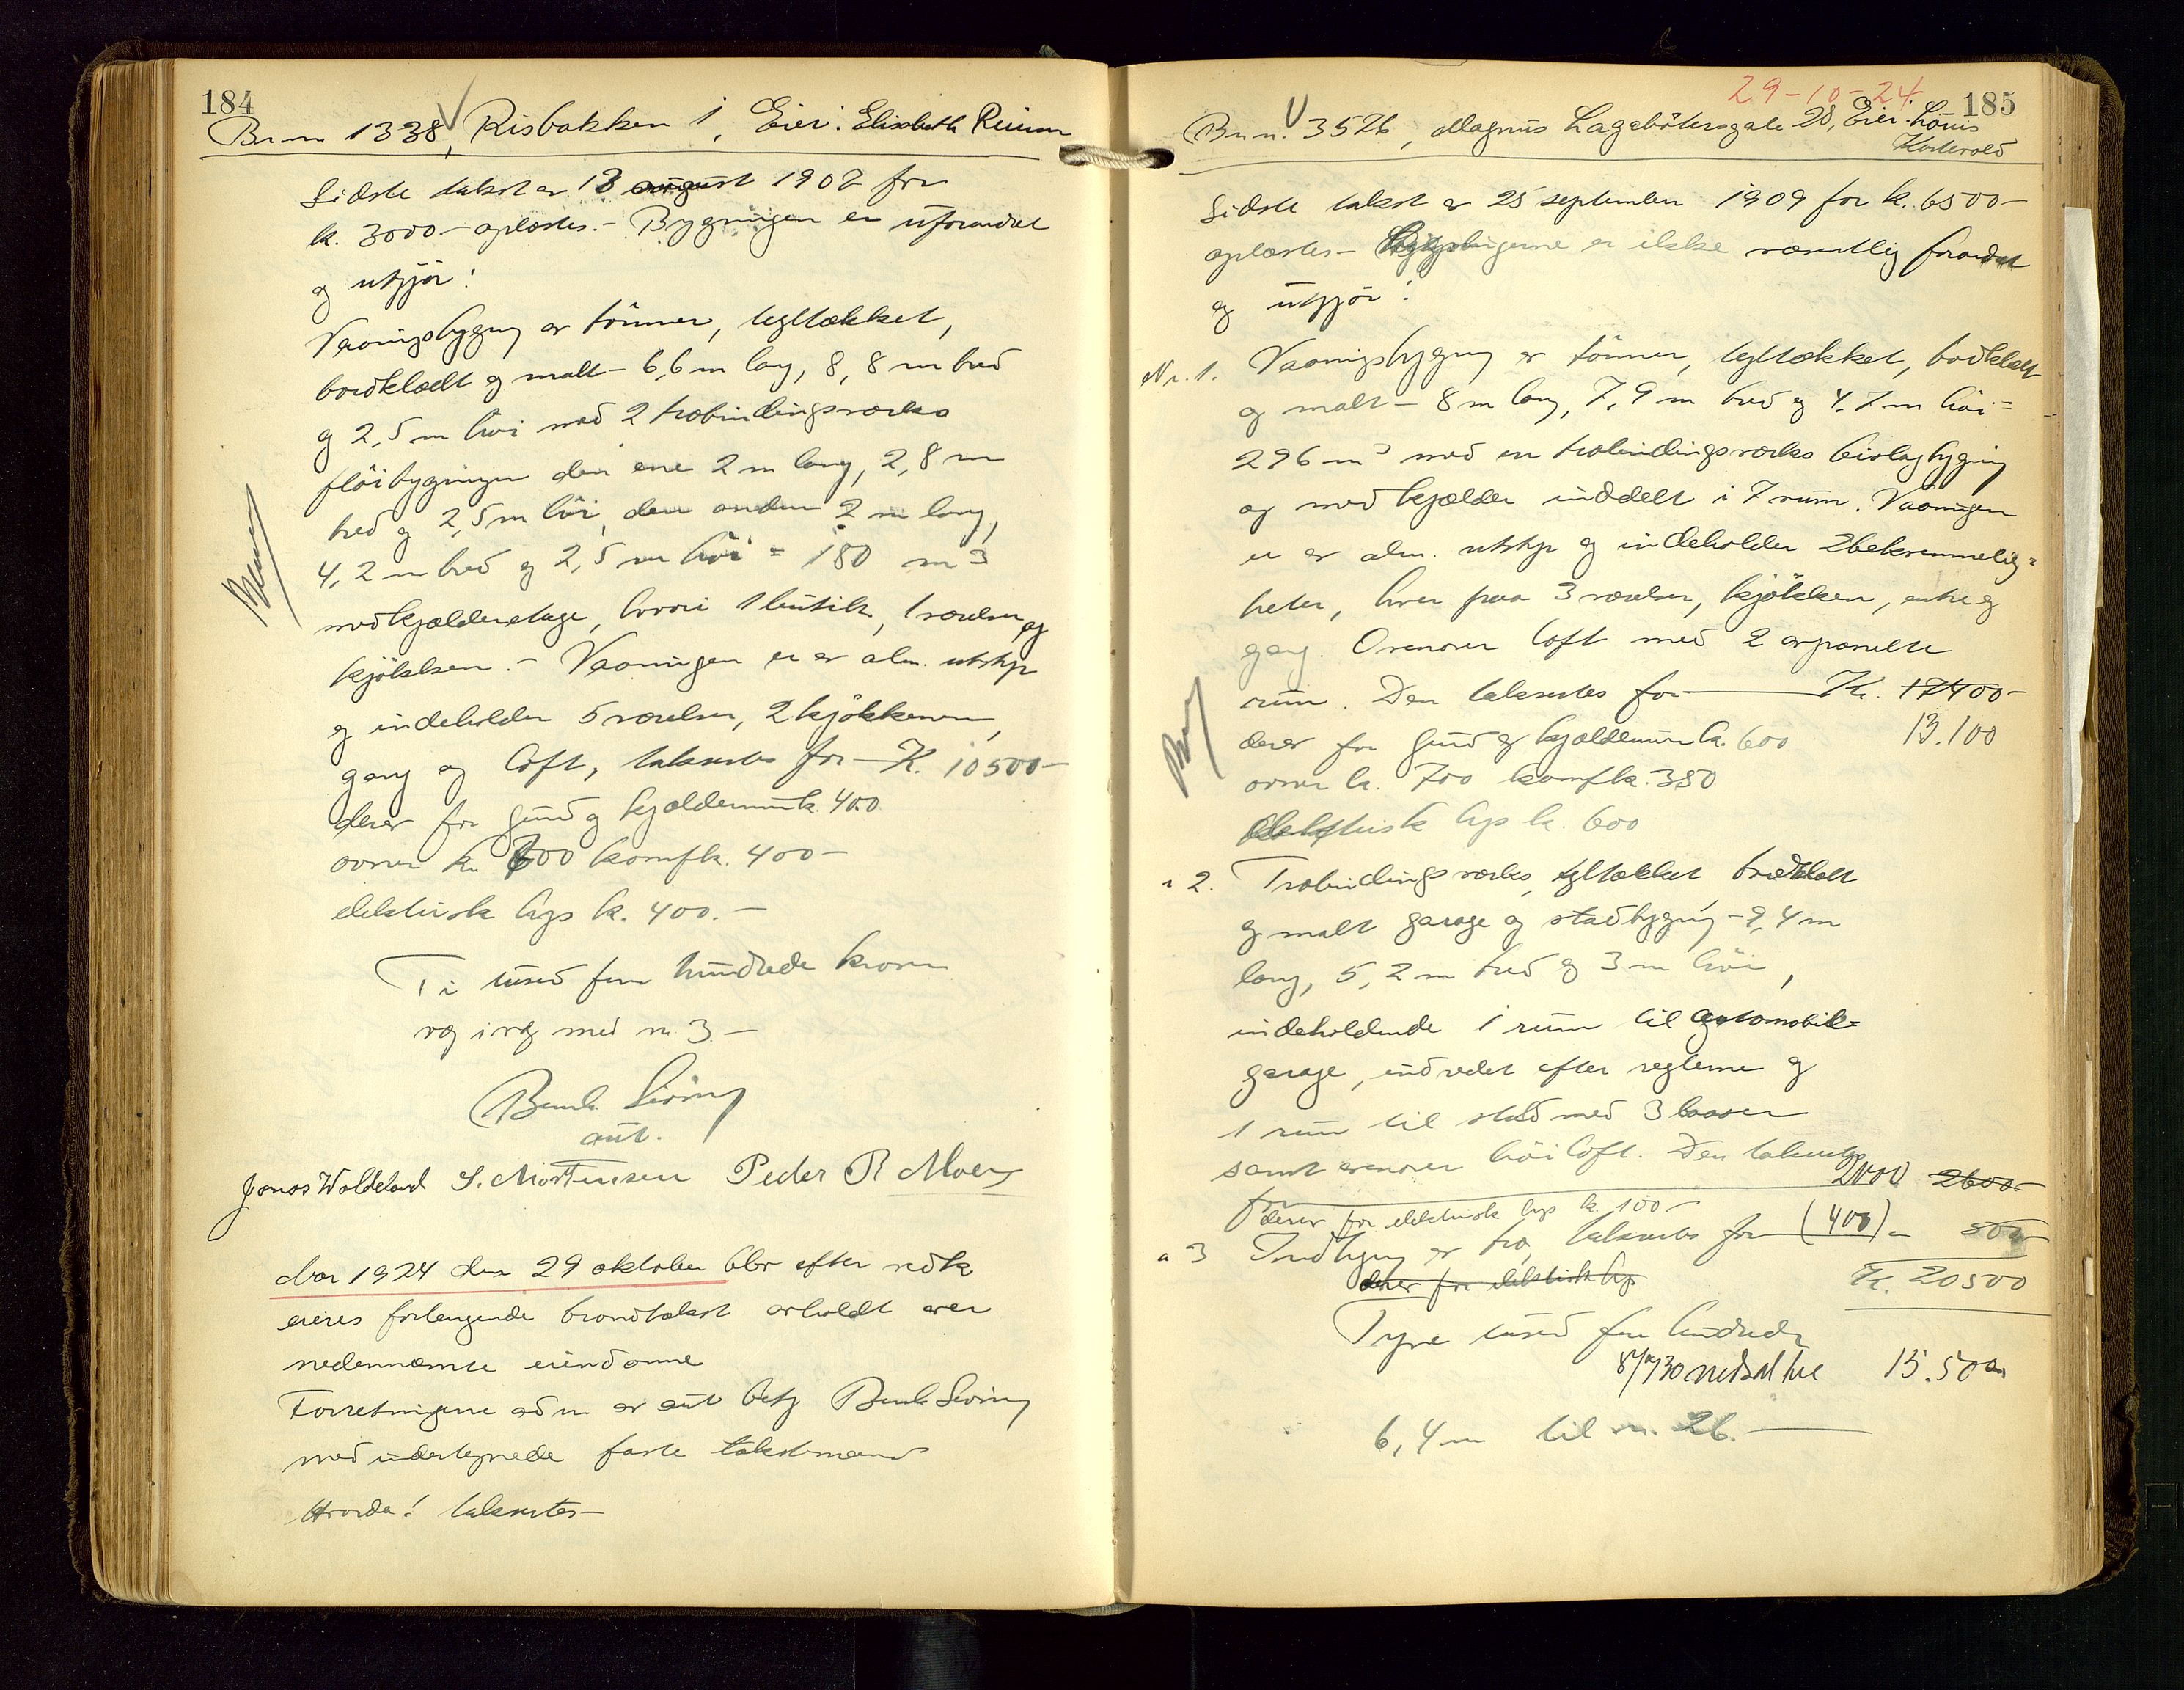 184
Br.nr 1338, Risbakken 1, Eier: Elisabeth Reiman
Sidste takst av 13 august 1902 for
k. 3000 – oplæstes. – Bygningen er uforandret
og utgjör:
Vaaningsbygning av tömmer, tegltækket,
bordklædt og malt – 6,6 m lang, 8,8 m bred
og 2,5 m höi med 2 træbindingsverks
flöibygninger den ene 2 m lang, 2,8 m
bred og 2,5 m höi, den anden 2 m lang,
4,2 m bred og 2,5 m höi = 180 m3
med kjælderetage, hvori 1 butik, 1 værelse og
kjökken. – Vaaningen er av alm. utstyr
og indeholder 5 værelser, 2 kjökkener,
gang og loft, taksertes for – K. 10500 –
derav for grund og kjældermur k. 400
ovner k. 600 komf k. 400 –
elektrisk lys k. 400. –
Ti tusend fem hundrede kroner
væg i væg med nr. 3 –
Bernh. Sivring
aut.
Jonas Waldeland S. Mortensen Peder R Moen
Aar 1924 den 29 oktober blev efter vedk
eieres forlangende brandtakst avholdt over
nedennævnte eiendomme
Forretningene adm av aut bety Bernh Sivring
med undertegnede faste takstmænd
Hvorda! taksertes –
29-10-24
185
Br.nr. 3526, Magnus Lagabötersgate 28, Eier: Louis
Sidste takst av 25 september 1909 for k. 6500 –
oplæstes – Bygningerne er ikke væsentlig forandret
og utgjör:
Nr. 1. Vaaningsbygning av tömmer, tegltækket, bordklædt
og malt – 8 m lang, 7,9 m bred og 4,7 m höi =
296 m3 med en træbindingsverks bislagbygning
og med kjælder inddelt i 7 rum. Vaaningen
er av alm. utstyr og indeholder 2 bekvemmelig=
heter, hver paa 3 værelser, kjökken, entre og
gang. Ovenover loft med 2 avpanelte
rum. Den taksertes for – Kr. 17400 –
derav for grund og kjældermur k. 600 13.100
ovner k. 700 komf k. 350
Elektrisk lys k. 600
" 2. Træbindingsverks, tegltækket bordklædt
og malt garage og staldbygning – 9,4 m
lang, 5,2 m bred og 3 m höi,
indeholdende 1 rum til automobil=
garage, indredet efter reglerne og
1 rum til stald med 3 baaser
samt ovenover höiloft. Den taksertes
for 2000 2600 –
derav for elektrisk lys k. 100 –
" 3 Indhegning av træ, taksertes for (400) " 500 –
derav for elektrisk lys Kr. 20500
Tyve tusend fem hundrede
8/8 30 nedsat til 15.500
6,4 m til nr. 26. –